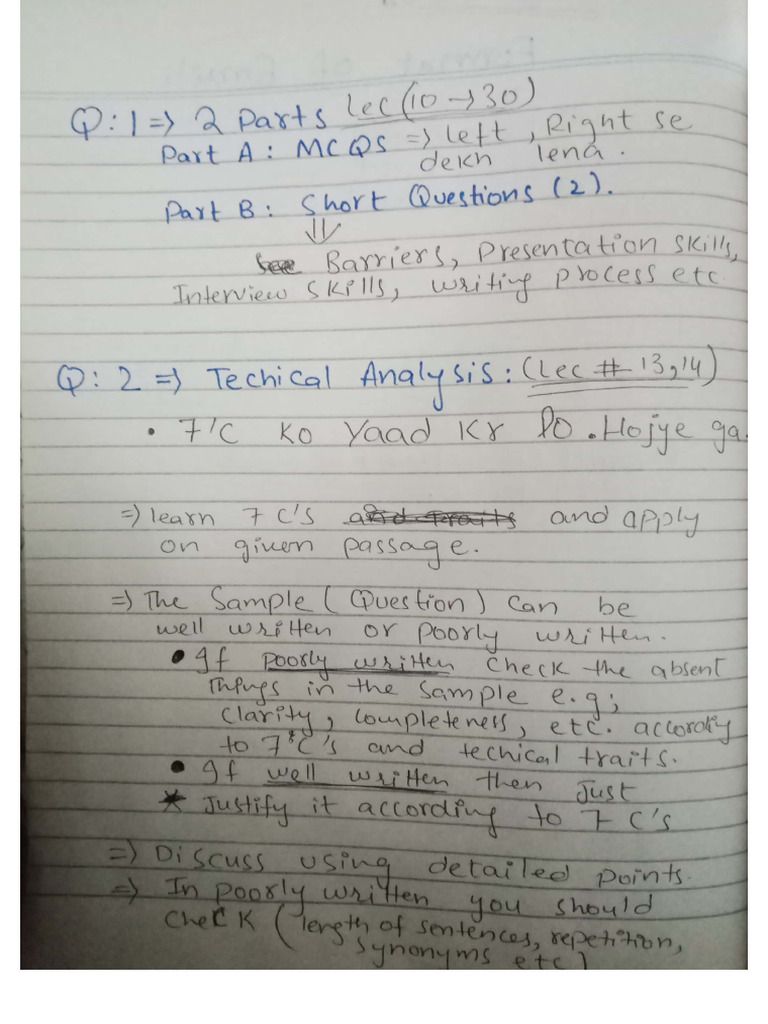 Q:1 => 2 Parts Lec(10→30)
Part A: MCQS => left, Right se
dekh lena.
Part B: Short Questions (2).
Barriers, Presentation skills,
Interview skills, writing process etc
Q:2 => Techical Analysis: (Lec # 13,14)
• 7'C Ko Yaad Kr lo. Hojye ga.
=> learn 7 C's and apply
on given passage.
=> The Sample (Question) can be
well written or poorly written.
• If poorly written check the absent
Things in the sample e.g;
Clarity, Completeness, etc. accordig
to 7'C's and techical traits.
• If well written then Just
* Justify it according to 7 C's
=> Discuss using detailed points.
=> In poorly written you should
check (length of sentences, repetition,
synonyms etc)